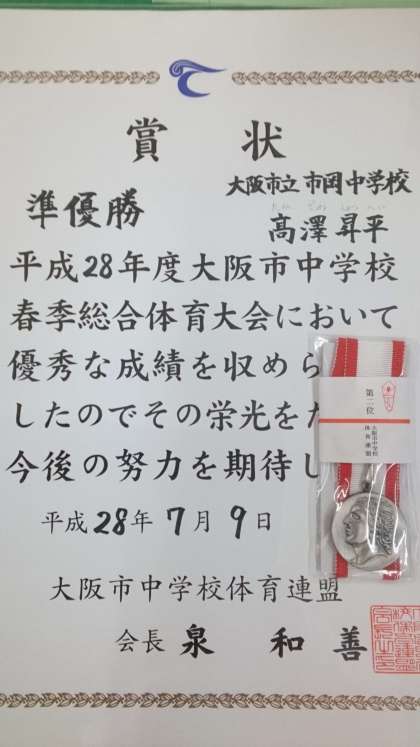 賞状
大阪市立市岡中学校
準優勝
髙澤昇平
平成28年度大阪市中学校
春季総合体育大会において
優秀な成績を収めら
したのでその栄光をた
今後の努力を期待し
平成28年7月9日
大阪市中学校体育連盟
会長 泉 和善
第二位
大阪市中学校
体育連盟